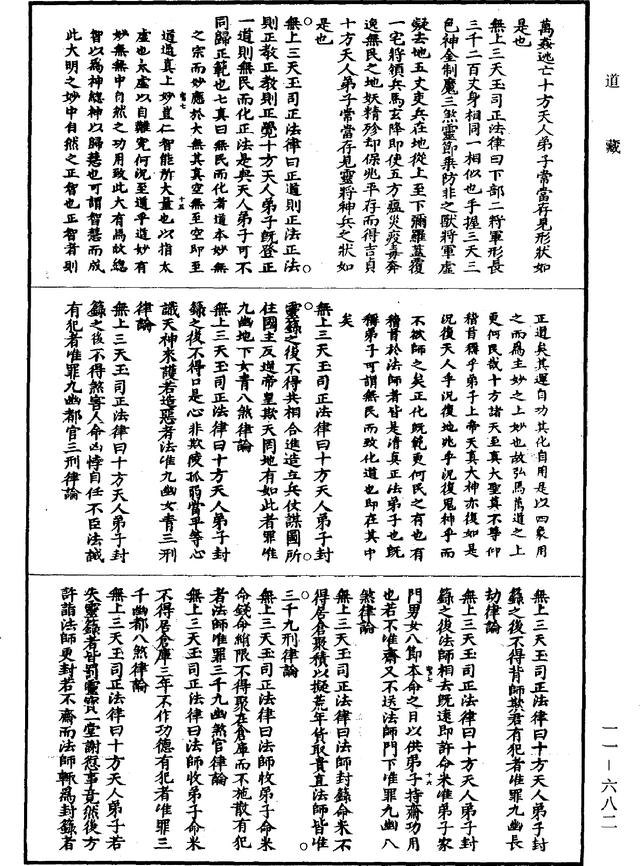 萬姦逃亡十方天人弟子常當存見形狀如
是也
無上三天玉司正法律曰下部二將軍形長
三千二百丈身相同一相似也手握三天三
色神金制魔三煞靈節乘防非之獸將軍虛
礙去地五丈吏兵在地從上至下彌羅蓋覆
一宅將領兵馬玄降即使五方瘟災疫毒奔
逸無民之地妖精殄却保兆平存而得吉貞
十方天人弟子常當存見靈將神兵之狀如
是也
無上三天玉司正法律曰正道則正法正法
則正教正教則正覺十方天人弟子既登正
一道則無民而化正法是與天人弟子可不
同歸正範也七真曰無民而化者道本妙無
之宗而妙應於大無其真空無至空即至
道道真上妙豈仁智能所大量也以指太
虛也太虛以自難究何況至道乎道妙有
妙無無中自然之功用致此大有爲故總
智以爲神總神以歸慧也可謂智慧而成
此大明之妙中自然之正智也正智者則
正道矣其運自功其化自用是以四象用
之而爲主妙之上妙也故弘爲萬道之上
更何民哉十方諸天至真大聖莫不尊仰
稽首稱乎弟子上帝天真大神亦復如是
況復天人乎況復地兆乎況復鬼神乎而
不欽師之矣正化既範更何民之有也有
稽首於法師者皆是清真正法弟子也既
稱弟子可謂無民而致化道也即在其中
矣
無上三天玉司正法律曰十方天人弟子封
靈籙之後不得共相合進造立兵仗謀國所
住國主反逆帝皇欺天罔地有如此者罪唯
九幽地下女青八煞律論
無上三天玉司正法律曰十方天人弟子封
籙之後不得口是心非欺陵孤弱當平等心
識天神來護若造惡者法唯九幽女青三刑
律論
無上三天玉司正法律曰十方天人弟子封
籙之後不得煞害人命凶悖自任不臣法誠
有犯者唯罪九幽都官三刑律論
無上三天玉司正法律曰十方天人弟子封
籙之後不得背師欺君有犯者唯罪九幽長
劫律論
無上三天玉司正法律曰十方天人弟子封
籙之後法師相去既遠即許命米唯弟子家
門男女八節本命之日以供弟子持齋功用
也若不唯齋又不送法師門下唯罪九幽八
煞律論
無上三天玉司正法律曰法師封籙命米不
得居倉聚積以擬荒年貨取貴直法師皆唯
三千九刑律論
無上三天玉司正法律曰法師收弟子命米
命錢命綃限不得聚在倉庫而不施散有犯
者法師唯罪三千九幽煞官律論
無上三天玉司正法律曰法師收弟子命米
不得居倉庫三年不作功德有犯者唯罪三
千幽都八煞律論
無上三天玉司正法律曰十方天人弟子若
失靈籙者皆罰靈寶一堂謝愆事竟然後方
許詣法師更封若不齋而法師輒爲封籙者
道藏
一一—六八二